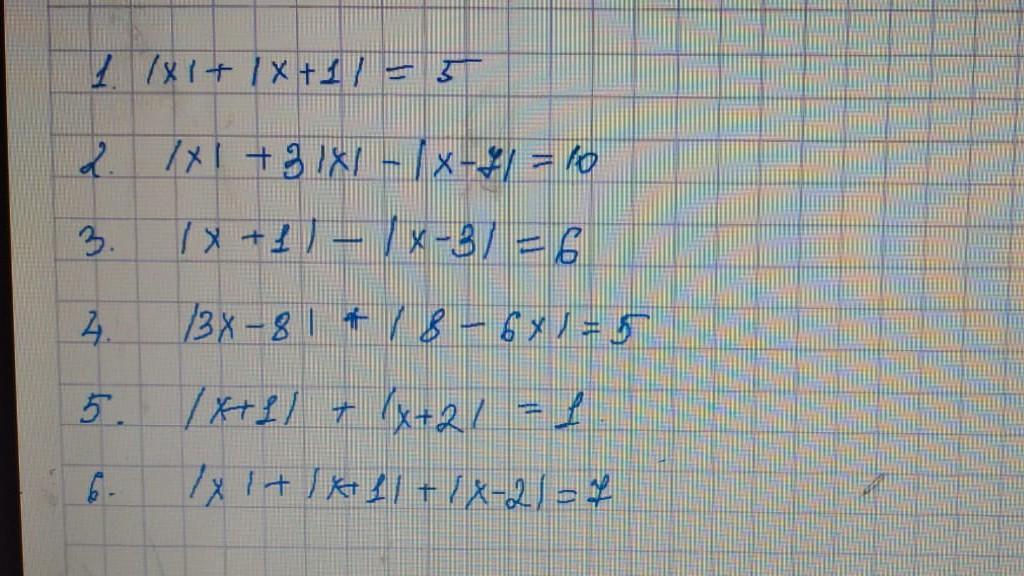 1. |x| + |x+1| = 5
2. |x| + 3|x| - |x-7| = 10
3. |x+1| - |x-3| = 6
4. |3x-8| + |8-6x| = 5
5. |x+1| + |x+2| = 1
6. |x| + |x+1| + |x-2| = 7